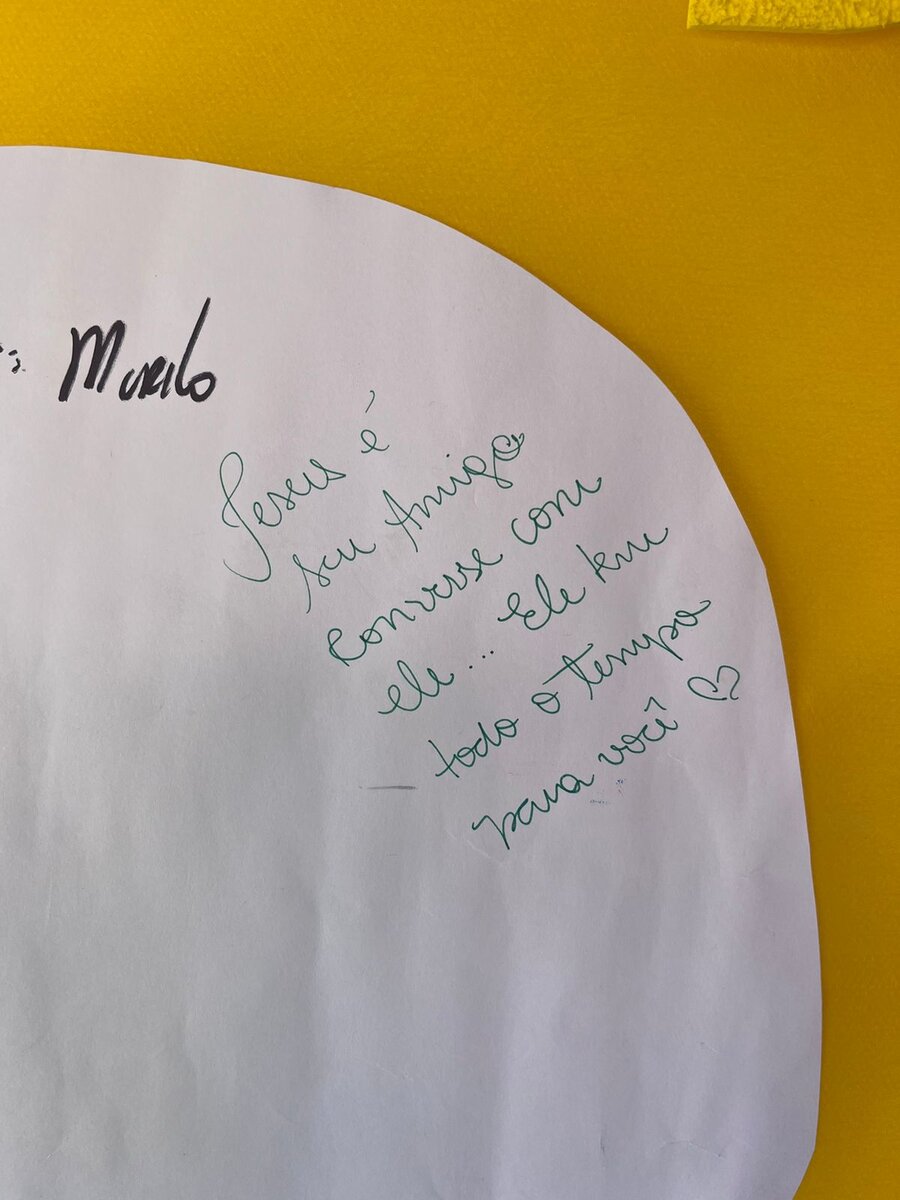 Murilo
Jesus é
seu Amigo
converse com
ele... Ele tem
todo o tempo
para você ♡